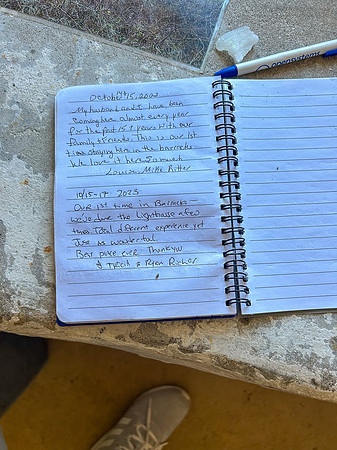 October 15, 20
My husband and I have been
coming here almost every year
for the past 15+ years with our
family & friends. This is our 1st
time staying here in the barracks
We love it here so much
Mike Ritter
10/15-17 2023
Our 1st time in Barracks
we've done the Lighthouse a few
times Total different experience yet
Just as wonderful
Best place ever Thank you
& Ryan